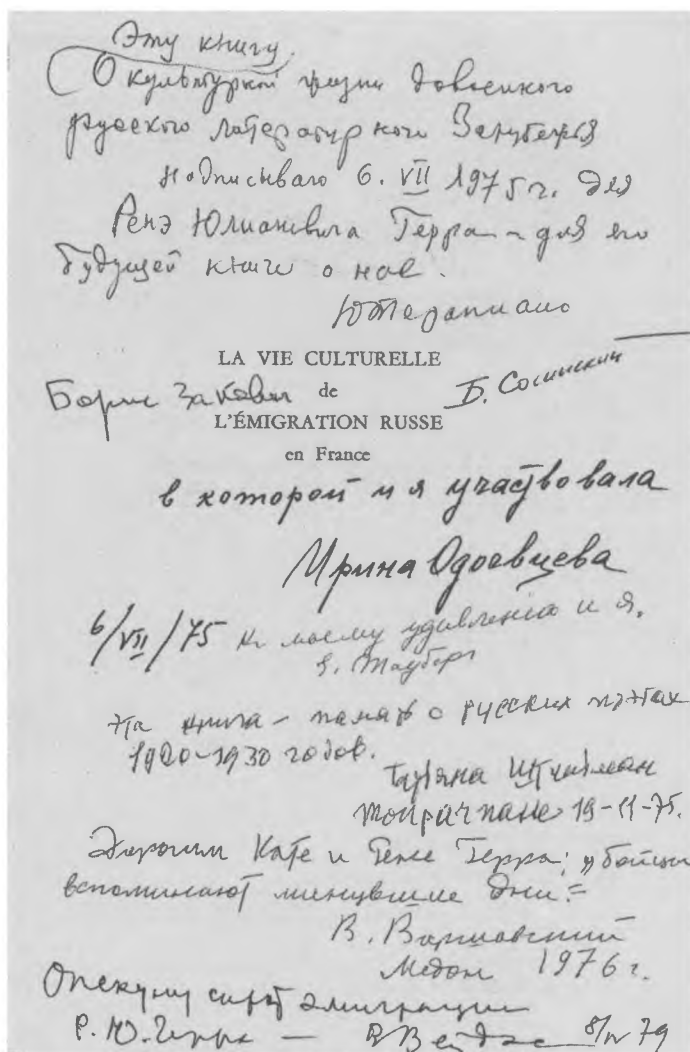 Эту книгу
О культурной жизни довоенного
русского литературного Зарубежья
надписываю 6. VII 1975 г. для
Ренэ Юлиановича Герра – для его
будущей книги о нас.
Ю Терапиано
LA VIE CULTURELLE
Борис Закович de Б. Сосинский
L'ÉMIGRATION RUSSE
en France
в которой и я участвовала
Ирина Одоевцева
6/VII/75 К моему удивленію и я.
Е. Таубер
Эта книга – память о русских поэтах
1920-1930 годов.
Татьяна Штильман
19-11-75.
Дорогим Кате и Рене Герра: „бойцы
вспоминают минувшие дни"
В. Варшавский
Медон 1976 г.
Опекуну сирот эмиграции
Р. Ю. Герра — В Вейдле 8/IV 79